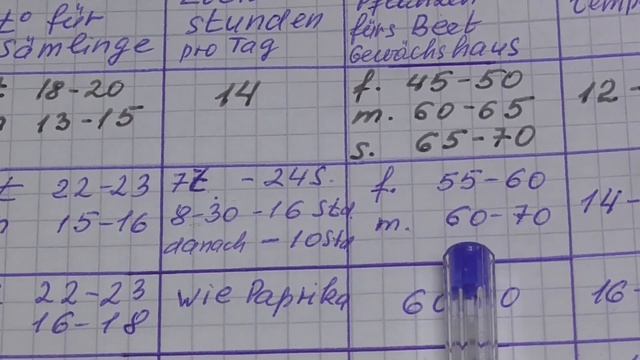 t° für
Sämlinge
stunden
pro Tag
fürs Beet
Gewächshaus
18-20
13-15
14
f. 45-50
m. 60-65
s. 65-70
12-
t 22-23
15-16
7t - 24S.
8-30 - 16 Std
danach - 10Std
f. 55-60
m. 60-70
14-
22-23
16-18
wie Paprika
16-